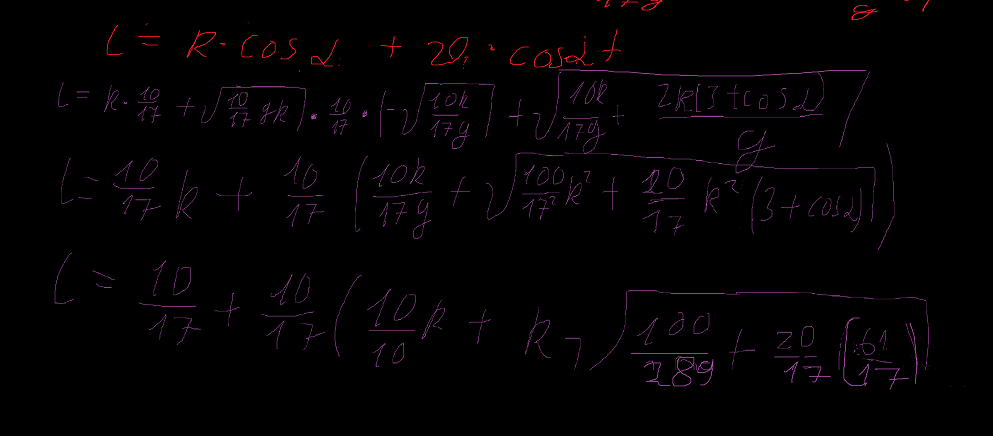 17g g
L = R · cos α + v₁ · cos α t
L = R · 10/17 + √(10/17 gR) · 10/17 · (-√(10R/17g) + √(10R/17g + 2R(3 + cos α)/g)
L = 10/17 R + 10/17 (10R/17g + √(100/17² R² + 20/17 R² (3 + cos α)))
L = 10/17 + 10/17 (10/10 R + R √(100/289 + 20/17 (61/17)